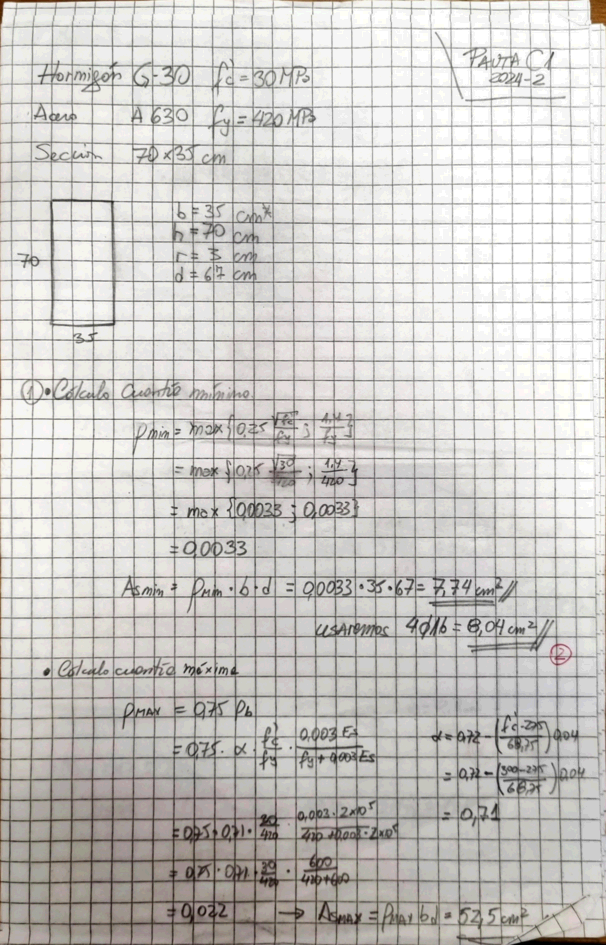 PAUTA C1
2024-2
Hormigón G-30 f'c = 30 MPa
Acero A 630 fy = 420 MPa
Sección 70x35 cm
b = 35 cm
h = 70 cm
r = 3 cm
d = 67 cm
70
35
① • Cálculo Cuantía mínima
ρmin = max{0,25 √f'c/fy ; 1,4/fy}
= max{0,25 √30/420 ; 1,4/420}
= max {0,0033 ; 0,0033}
= 0,0033
Asmin = ρmin · b · d = 0,0033 · 35 · 67 = 7,74 cm² //
usaremos 4φ16 = 8,04 cm² //
②
• Cálculo cuantía máxima
ρMAX = 0,75 ρb
= 0,75 · α · f'c/fy · 0,003 Es/(fy + 0,003 Es)
α = 0,72 - (f'c - 275/68,75) 0,04
= 0,72 - (300 - 275/68,75) 0,04
= 0,71
= 0,75 · 0,71 · 30/420 · 0,003 · 2x10⁵/(420 + 0,003 · 2x10⁵)
= 0,75 · 0,71 · 30/420 · 600/(420 + 600)
= 0,022 → AsMAX = ρMAX bd = 52,5 cm²